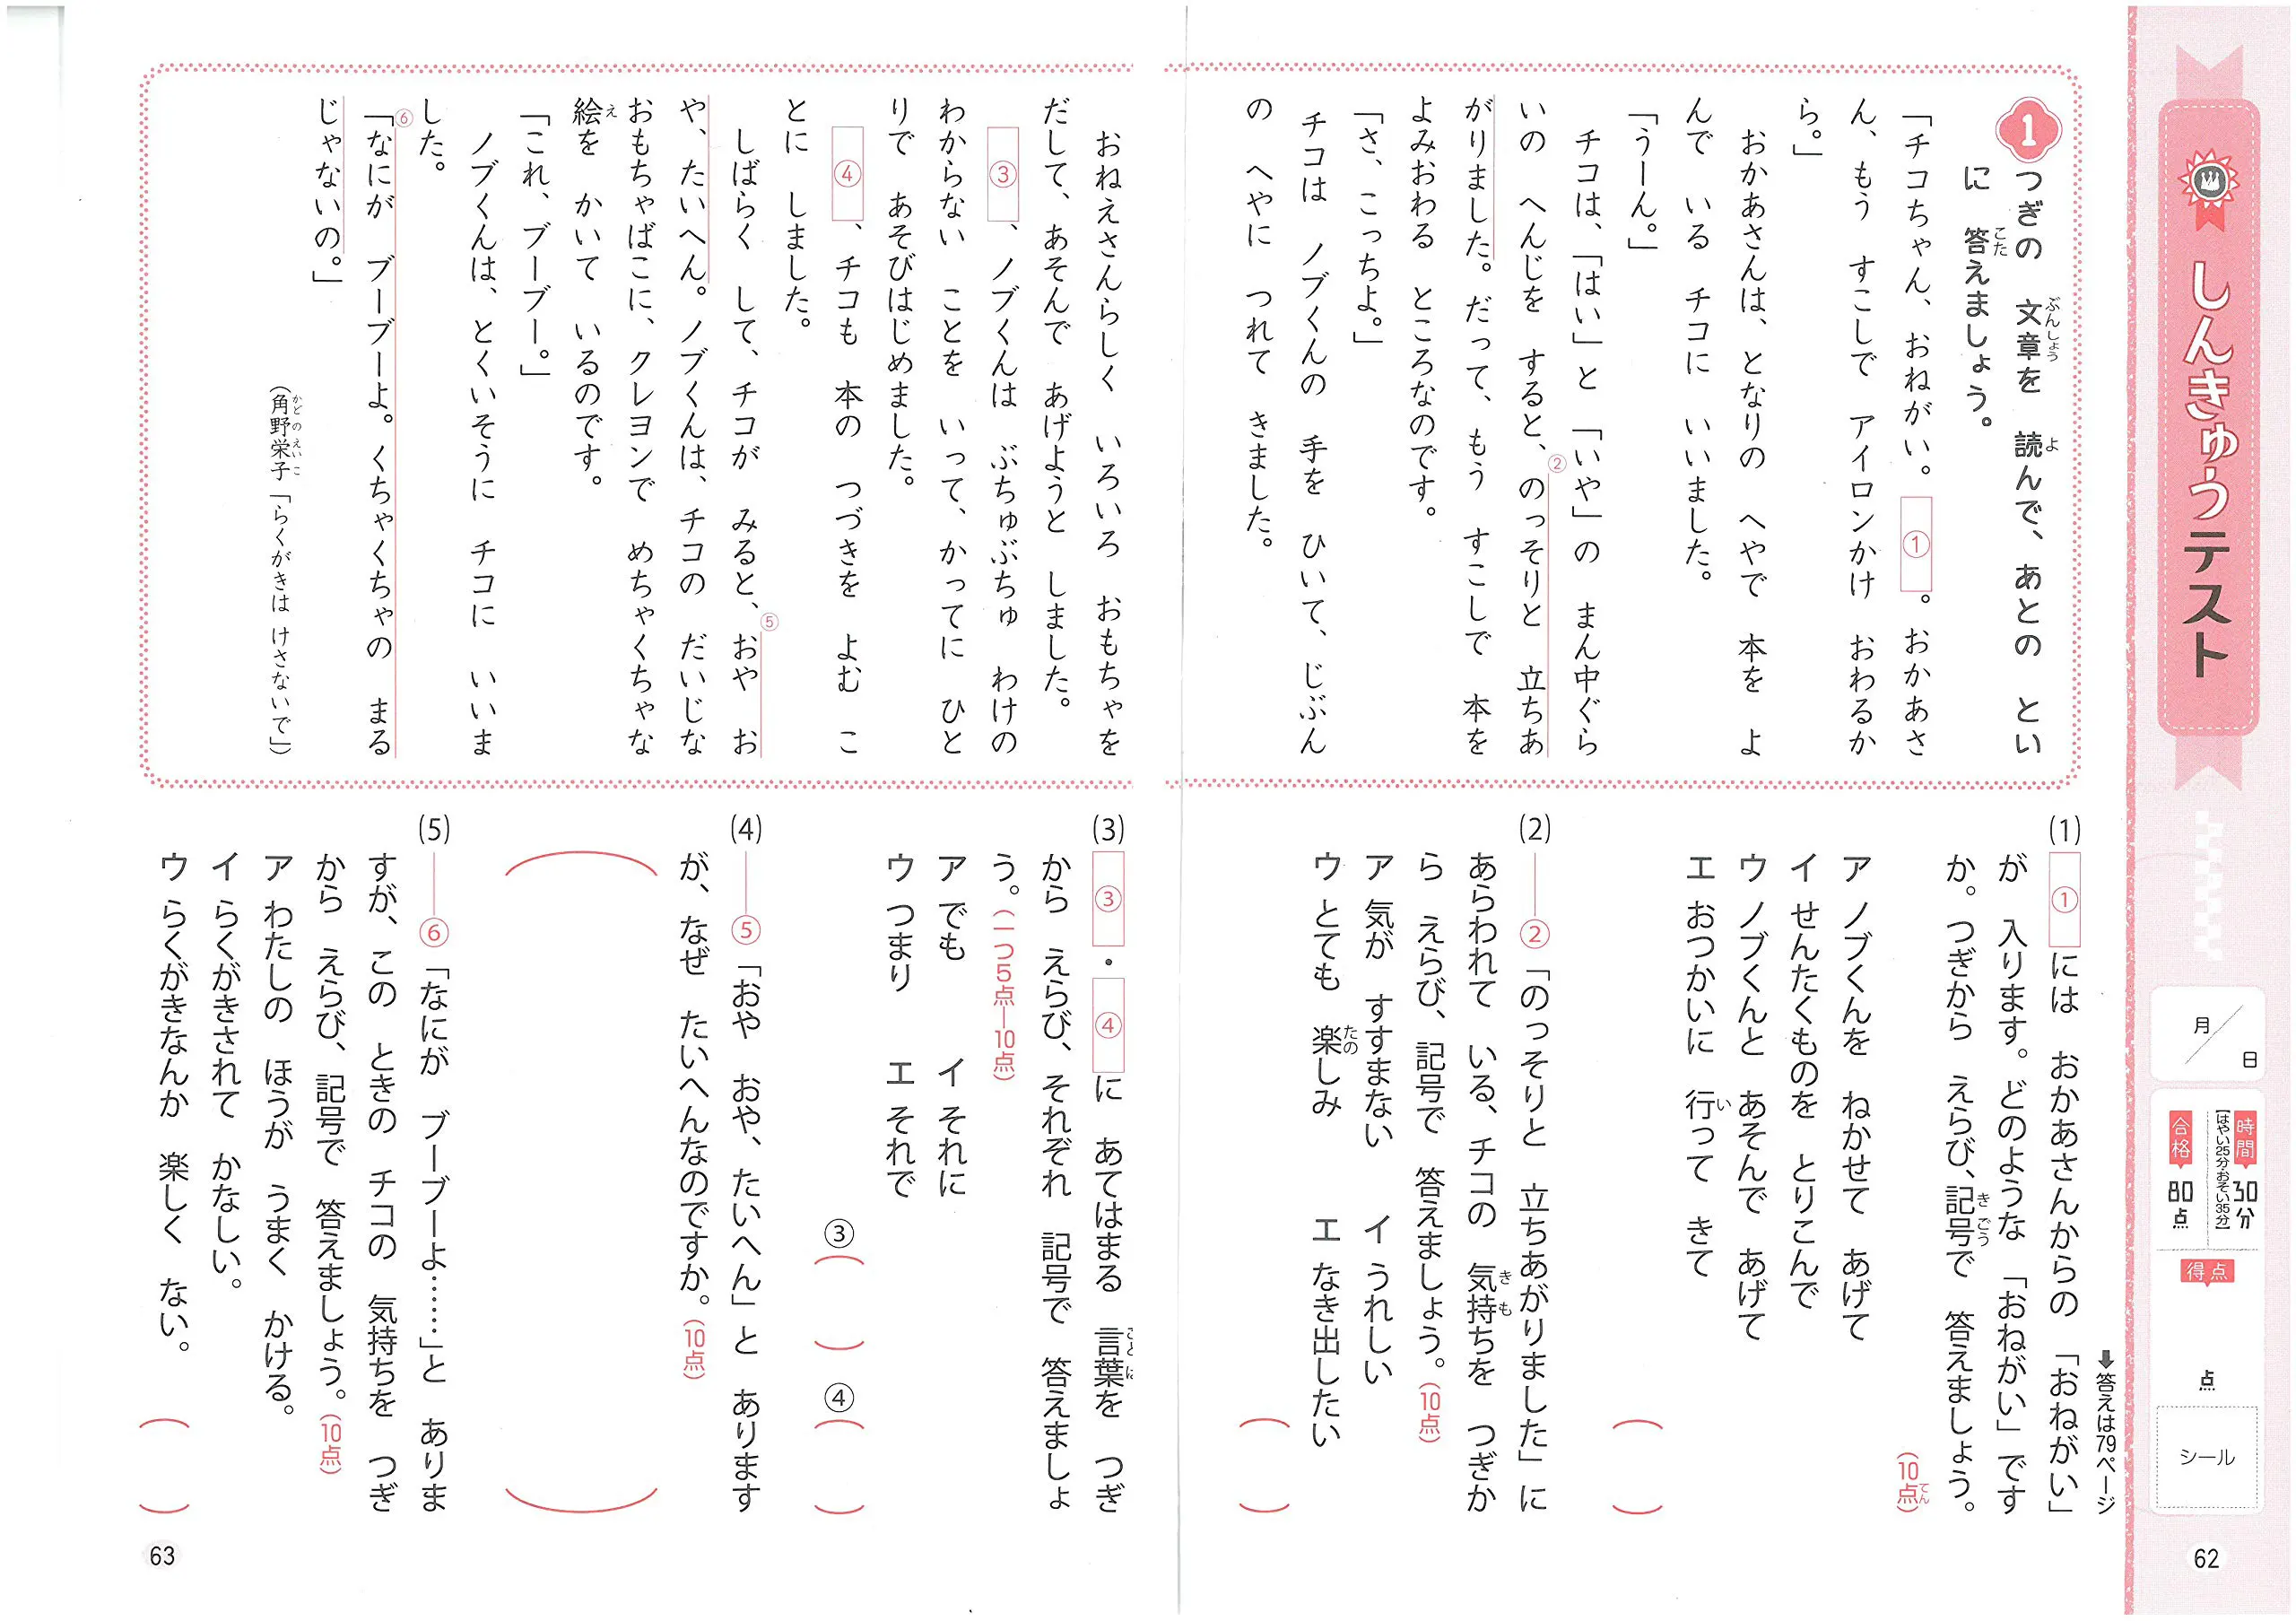 しんきゅうテスト
月／日
時間 30分
【はやい25分・おそい35分】
合格 80点
得点
点
シール
62
➡答えは79ページ
1 つぎの 文章を 読んで、あとの とい
に 答えましょう。
「チコちゃん、おねがい。①。おかあさ
ん、もう すこしで アイロンかけ おわるか
ら。」
おかあさんは、となりの へやで 本を よ
んで いる チコに いいました。
「うーん。」
チコは、「はい」と「いや」の まん中ぐら
いの へんじを すると、②のっそりと 立ちあ
がりました。だって、もう すこしで 本を
よみおわる ところなのです。
「さ、こっちよ。」
チコは ノブくんの 手を ひいて、じぶん
の へやに つれて きました。
おねえさんらしく いろいろ おもちゃを
だして、あそんで あげようと しました。
③、ノブくんは ぶちゅぶちゅ わけの
わからない ことを いって、かってに ひと
りで あそびはじめました。
④、チコも 本の つづきを よむ こ
とに しました。
しばらく して、チコが みると、⑤おや お
や、たいへん。ノブくんは、チコの だいじな
おもちゃばこに、クレヨンで めちゃくちゃな
絵を かいて いるのです。
「これ、ブーブー。」
ノブくんは、とくいそうに チコに いいま
した。
⑥「なにが ブーブーよ。くちゃくちゃの まる
じゃないの。」
（角野栄子「らくがきは けさないで」）
(1) ①には おかあさんからの 「おねがい」
が 入ります。どのような 「おねがい」です
か。つぎから えらび、記号で 答えましょう。
（10点）
ア ノブくんを ねかせて あげて
イ せんたくものを とりこんで
ウ ノブくんと あそんで あげて
エ おつかいに 行って きて
（　　）
(2) ――②「のっそりと 立ちあがりました」に
あらわれて いる、チコの 気持ちを つぎか
ら えらび、記号で 答えましょう。（10点）
ア 気が すすまない イ うれしい
ウ とても 楽しみ エ なき出したい
（　　）
(3) ③・④に あてはまる 言葉を つぎ
から えらび、それぞれ 記号で 答えましょ
う。（一つ5点―10点）
ア でも イ それに
ウ つまり エ それで
③（　　） ④（　　）
(4) ――⑤「おや おや、たいへん」と あります
が、なぜ たいへんなのですか。（10点）
（　　）
(5) ――⑥「なにが ブーブーよ……」と ありま
すが、この ときの チコの 気持ちを つぎ
から えらび、記号で 答えましょう。（10点）
ア わたしの ほうが うまく かける。
イ らくがきされて かなしい。
ウ らくがきなんか 楽しく ない。
（　　）
63